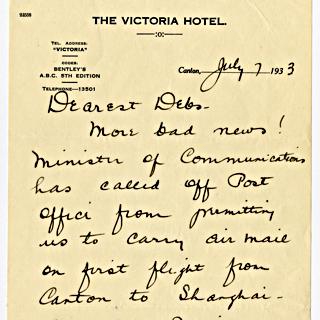 THE VICTORIA HOTEL.
TEL. ADDRESS:
"VICTORIA"
CODES:
BENTLEY'S
A.B.C. 5TH EDITION
TELEPHONE—13501
Canton, July 7 1933
Dearest Debs-
More bad news!
Minister of Communications
has called off Post
Office from permitting
us to carry air mail
on first flight from
Canton to Shanghai-